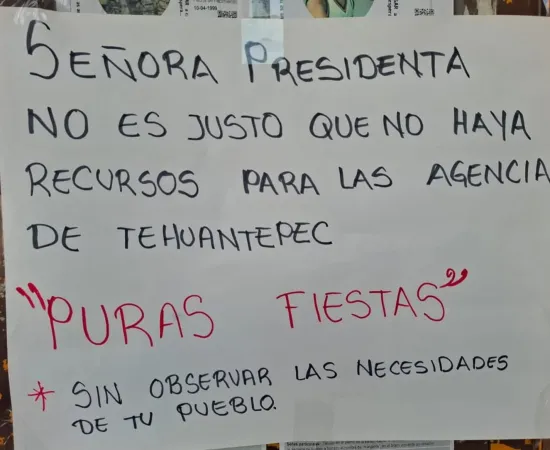 SEÑORA PRESIDENTA
NO ES JUSTO QUE NO HAYA
RECURSOS PARA LAS AGENCIA
DE TEHUANTEPEC
"PURAS FIESTAS"
* SIN OBSERVAR LAS NECESIDADES
DE TU PUEBLO.